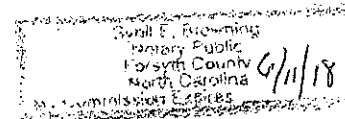 E. Browning
Notary Public
Forsyth County
North Carolina
Commission Expires 6/11/18